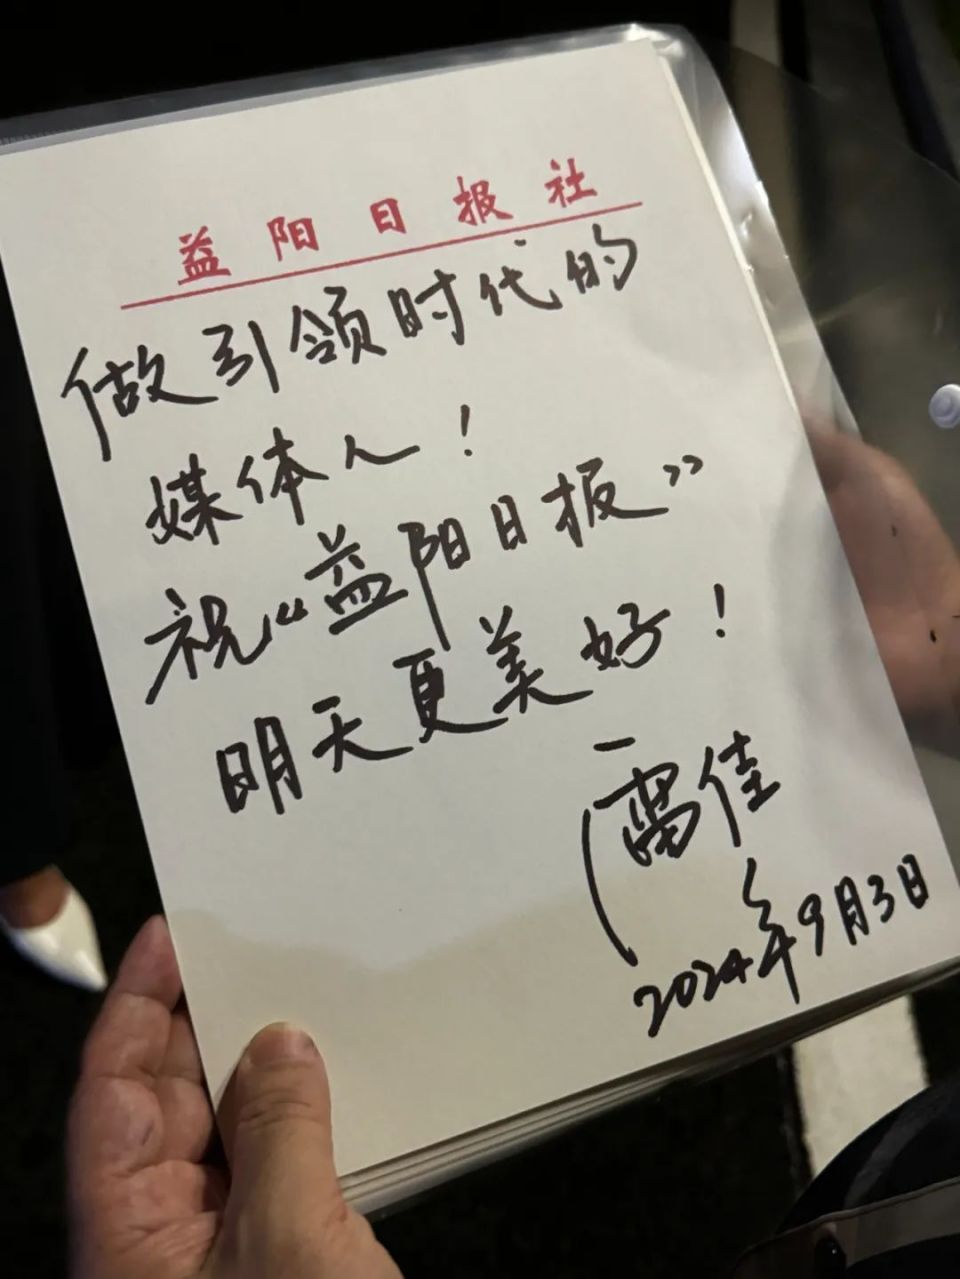 益阳日报社
做引领时代的
媒体人！
祝“益阳日报”
明天更美好！
雷佳
2024年9月3日